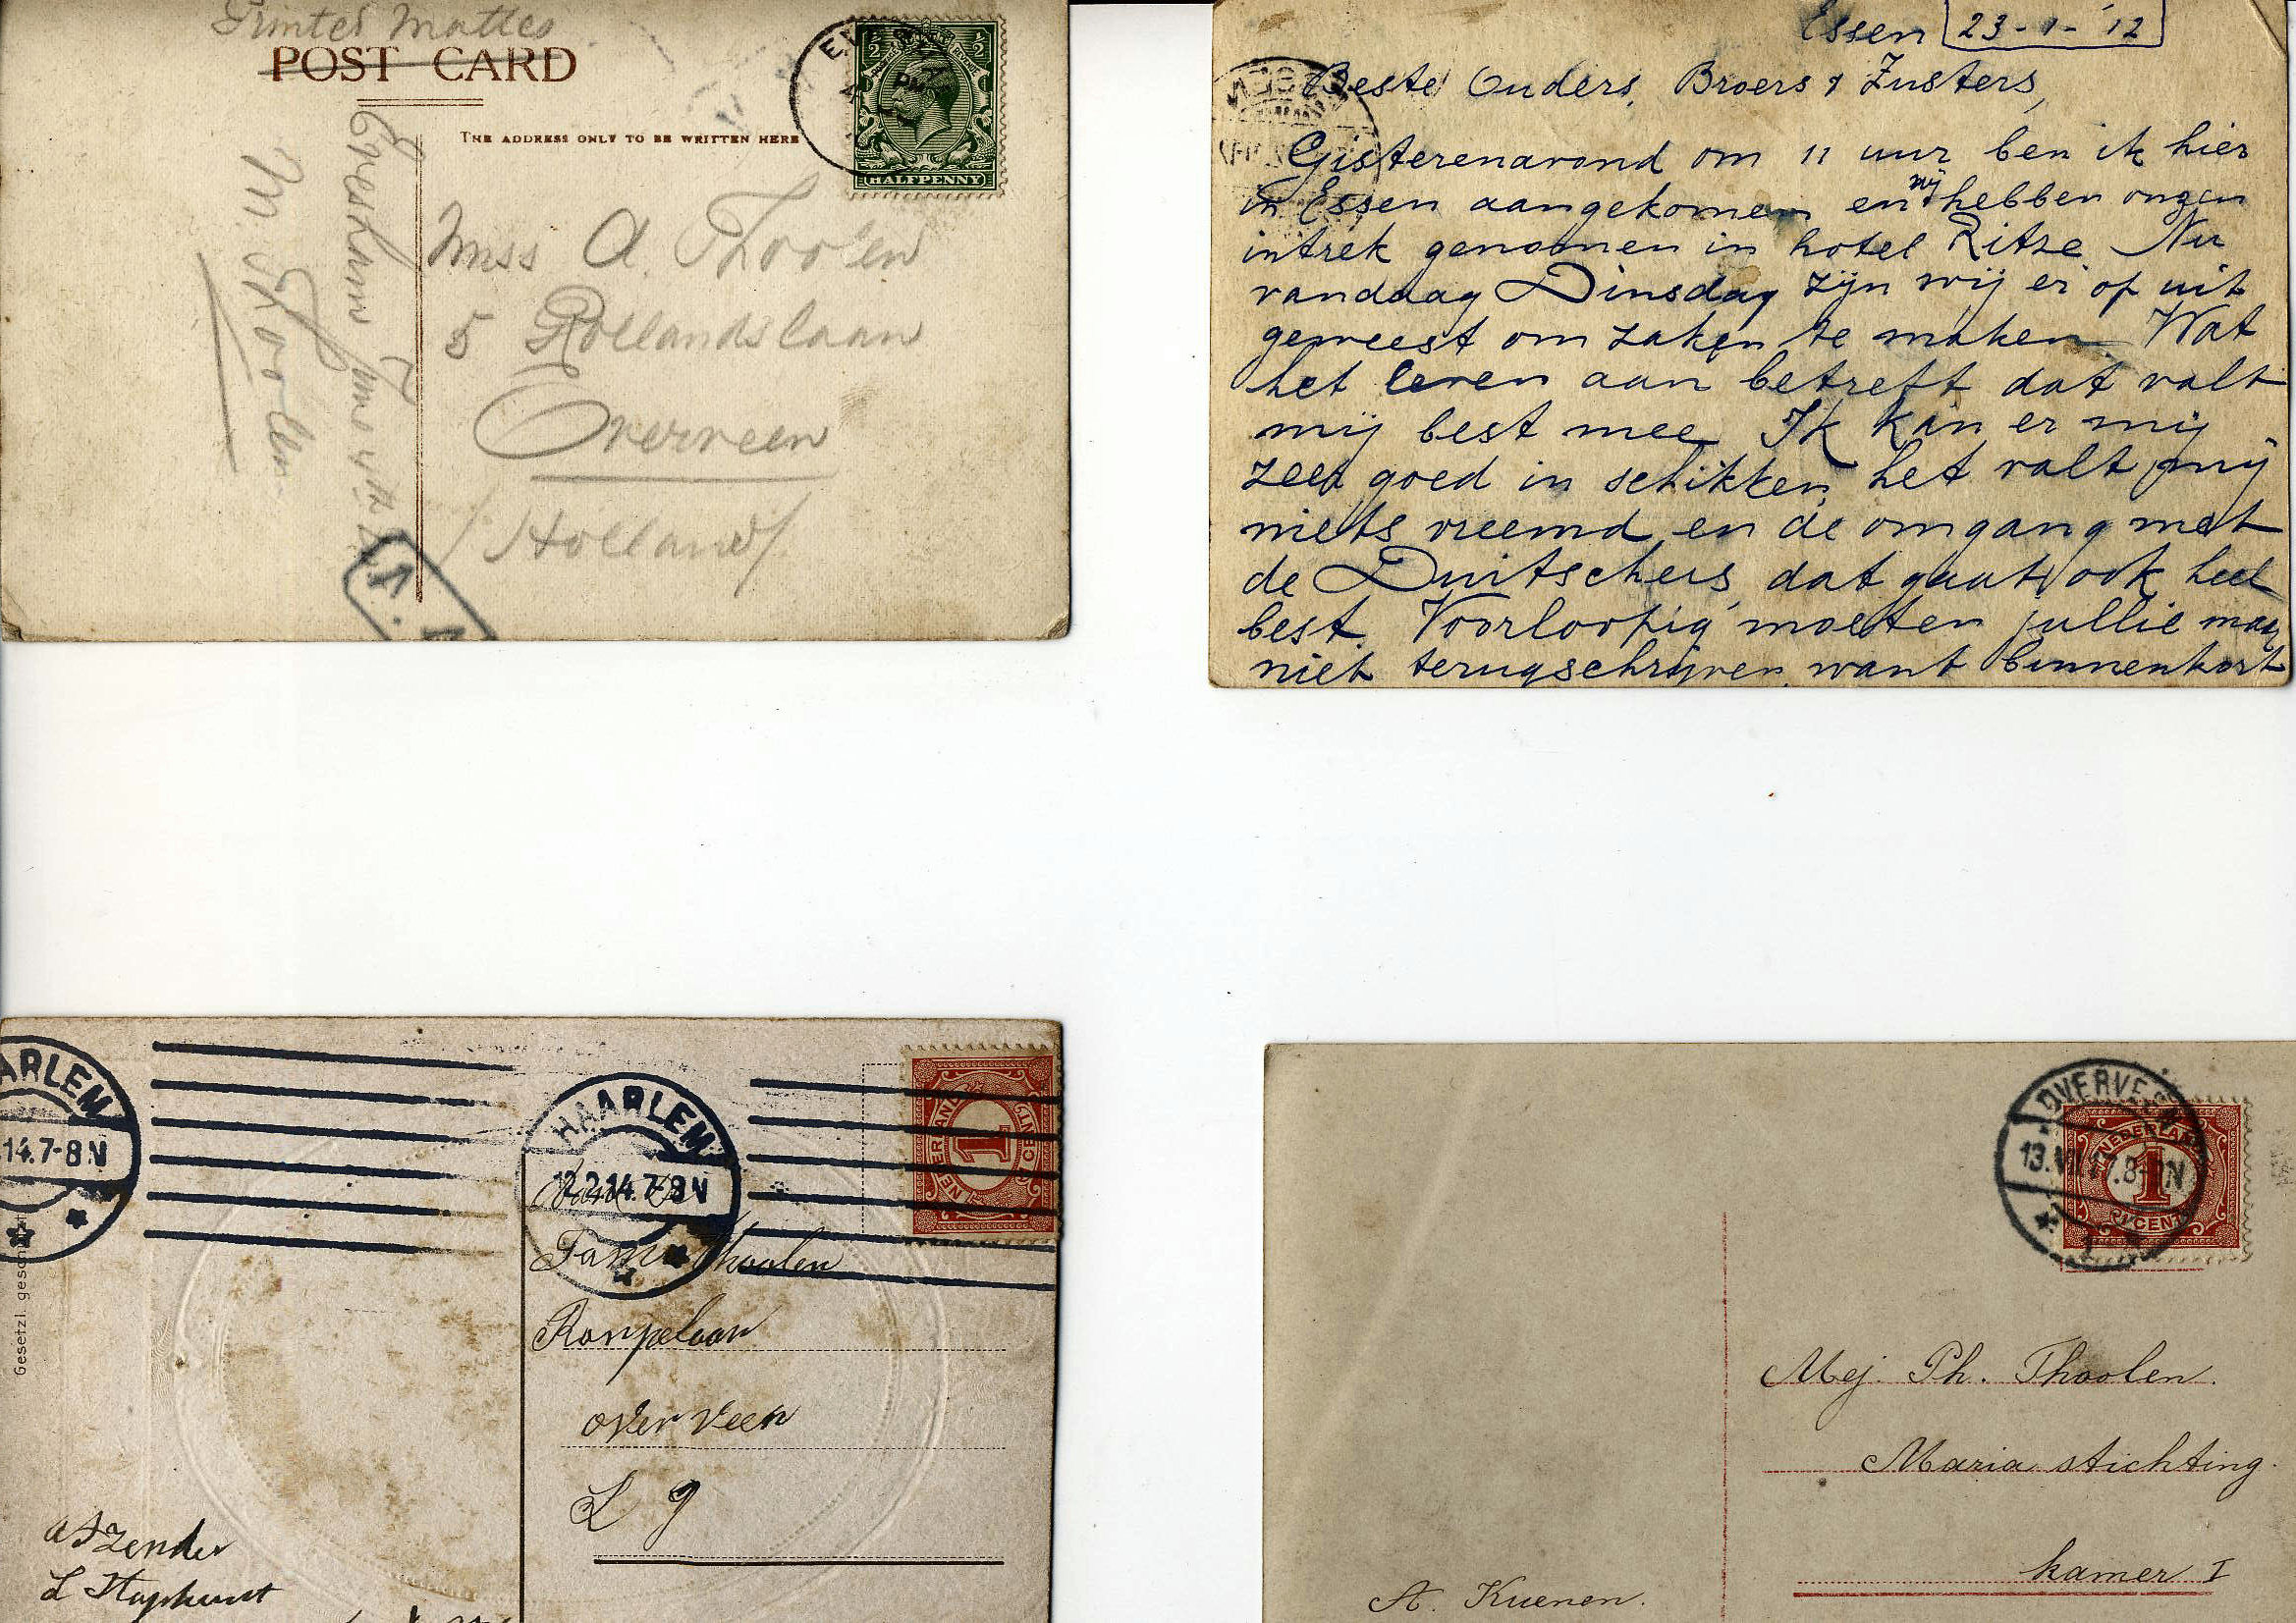 Printed Matter
POST CARD
THE ADDRESS ONLY TO BE WRITTEN HERE
HALFPENNY
Miss A. Thoolen
5 Rollandslaan
Overveen
(Holland)
Evesham
M. Thoolen
Essen 23-1-'12
Beste Ouders, Broers & Zusters,
Gisterenavond om 11 uur ben ik hier
in Essen aangekomen en wij hebben onzen
intrek genomen in hotel Ritze Nu
vandaag Dinsdag zijn wij er op uit
geweest om zaken te maken. Wat
het leven aan betreft dat valt
mij best mee. Ik kan er mij
zeer goed in schikken, het valt mij
niets vreemd en de omgang met
de Duitschers, dat gaat ook heel
best. Voorloopig moeten jullie maar
niet terugschrijven, want binnenkort
HAARLEM
14.7-8N
HAARLEM
12.2.14.7-8N
NEDERLAND
1
CENT
Gesetzl. gesch
Fam Thoolen
overveen
L 9
afzender
OVERVEEN
NEDERLAND
1
CENT
Mej. Ph. Thoolen.
Maria stichting.
kamer I
A. Kuenen.